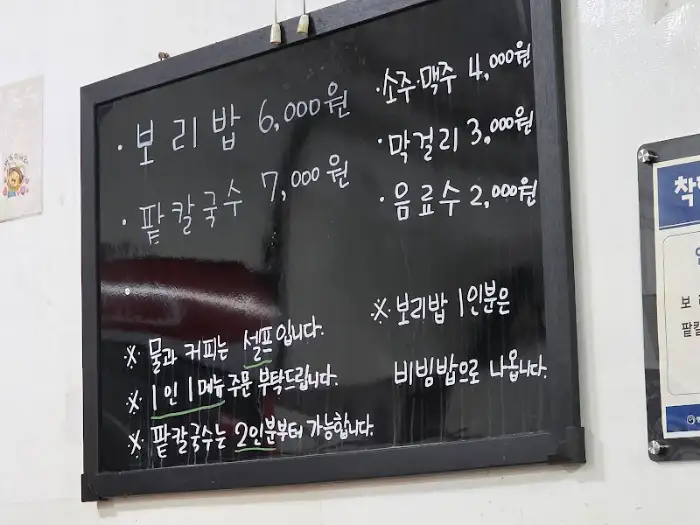 · 보리밥 6,000원
· 팥칼국수 7,000원
· 소주·맥주 4,000원
· 막걸리 3,000원
· 음료수 2,000원
※ 물과 커피는 셀프입니다.
※ 1인 1메뉴 주문 부탁드립니다.
※ 팥칼국수는 2인분부터 가능합니다.
※ 보리밥 1인분은
비빔밥으로 나옵니다.
착
보
팥칼